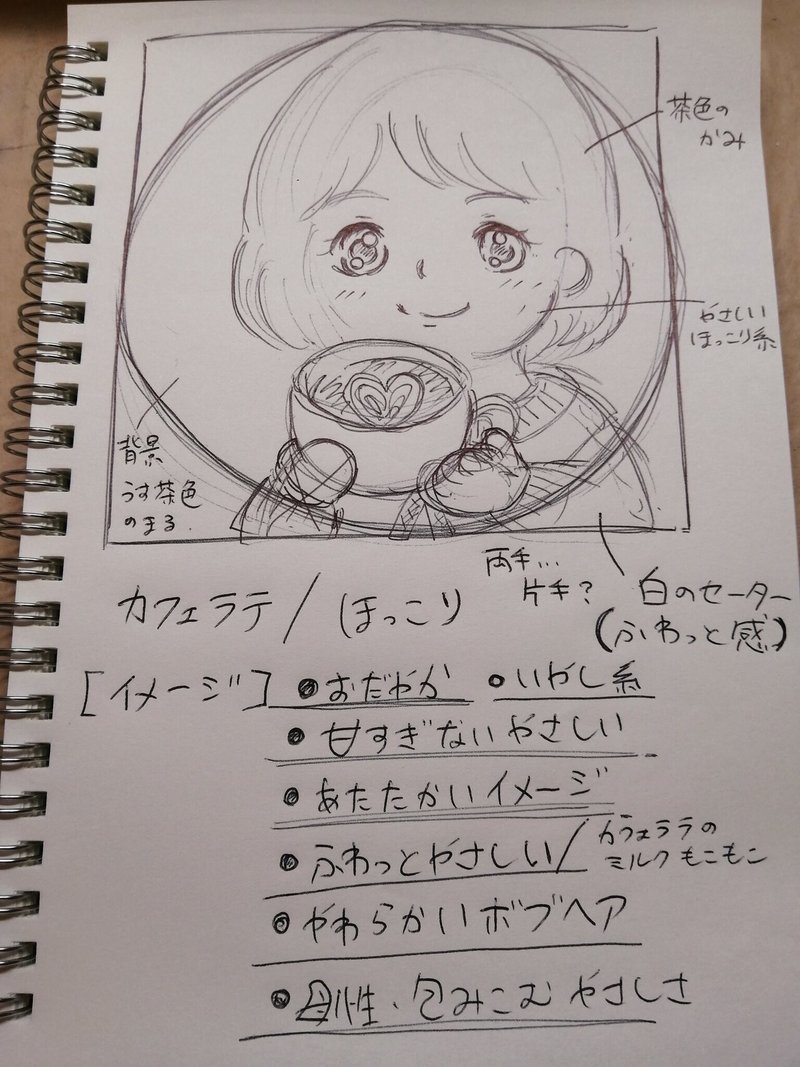 茶色の
かみ
やさしい
ほっこり系
背景
うす茶色
のまる.
両手...
片手?
白のセーター
(ふわっと感)
カフェラテ/ほっこり
[イメージ] ●おだやか ●いやし系
●甘すぎないやさしい
●あたたかいイメージ
●ふわっとやさしい/カフェラテの
ミルクもこもこ
●やわらかいボブヘア
●母性、包みこむやさしさ